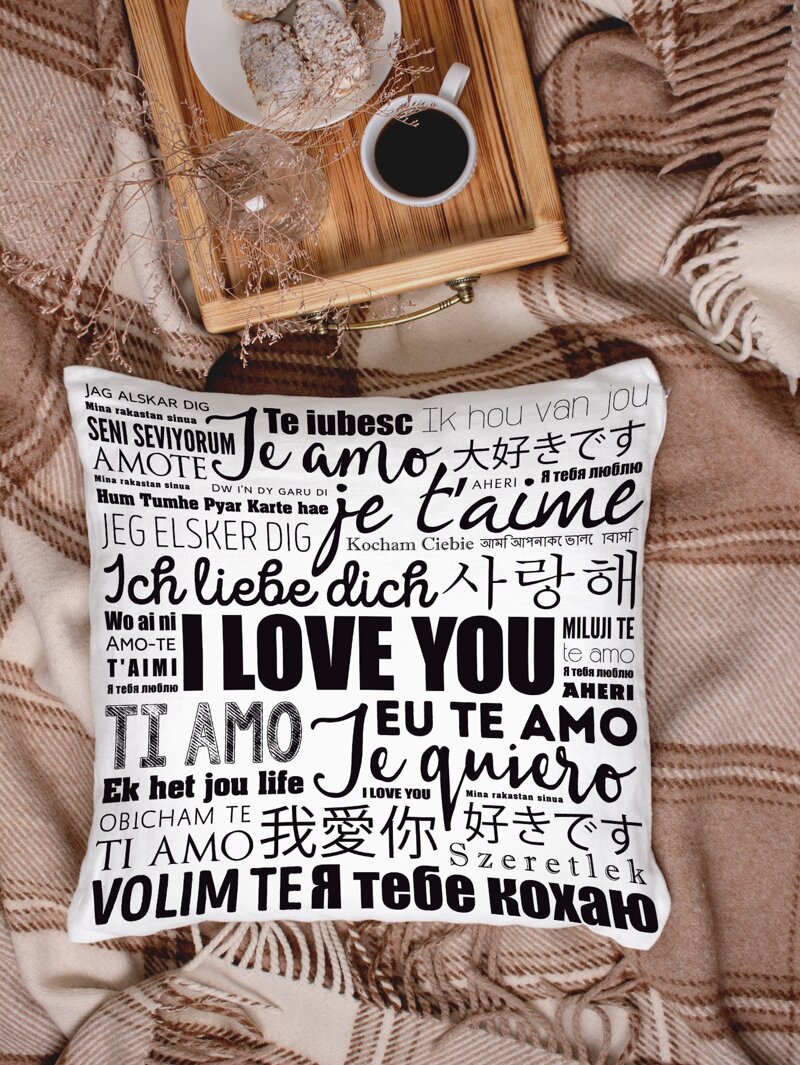 JAG ALSKAR DIG
Mina rakastan sinua
Te iubesc
Ik hou van jou
SENI SEVIYORUM
Te amo
大好きです
AMOTE
Mina rakastan sinua
DW I'N DY GARU DI
AHERI
Я тебя люблю
Hum Tumhe Pyar Karte hae
je t'aime
JEG ELSKER DIG
Kocham Ciebie
Ich liebe dich
사랑해
Wo ai ni
I LOVE YOU
MILUJI TE
AMO-TE
te amo
T'AIMI
Я тебя люблю
Я тебя люблю
AHERI
TI AMO
EU TE AMO
Te quiero
Ek het jou life
I LOVE YOU
Mina rakastan sinua
OBICHAM TE
我愛你
好きです
TI AMO
Szeretlek
VOLIM TE
Я тебе кохаю